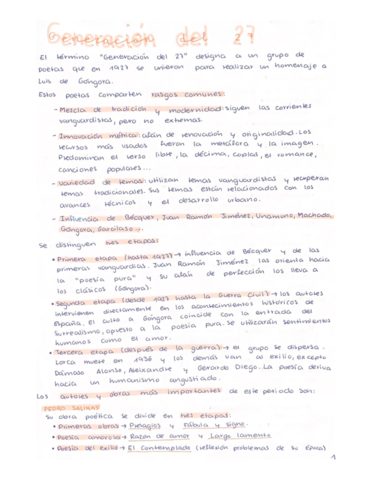 Generación del 27
El término "Generación del 27" designa a un grupo de
poetas que en 1927 se unieron para realizar un homenaje a
Luis de Góngora.
Estos poetas comparten rasgos comunes:
- Mezcla de tradición y modernidad: siguen las corrientes
vanguardistas, pero no extremas.
- Innovación métrica: afán de renovación y originalidad. Los
recursos más usados fueron la metáfora y la imagen.
Predominan el verso libre, la décima, coplas, el romance,
canciones populares...
- Variedad de temas: utilizan temas vanguardistas y recuperan
temas tradicionales. Sus temas están relacionados con los
avances técnicos y el desarrollo urbano.
- Influencia de Bécquer, Juan Ramón Jiménez, Unamuno, Machado,
Góngora, Garcilaso...
Se distinguen tres etapas:
• Primera etapa (hasta 1927) → influencia de Bécquer y de las
primeras vanguardias. Juan Ramón Jiménez las orienta hacia
la "poesía pura" y su afán de perfección los lleva a
los clásicos (Góngora).
• Segunda etapa (desde 1927 hasta la Guerra Civil) → los autores
intervienen directamente en los acontecimientos históricos de
España. El culto a Góngora coincide con la entrada del
surrealismo, opuesto a la poesía pura. Se utilizarán sentimientos
humanos como el amor.
• Tercera etapa (después de la guerra) → el grupo se dispersa.
Lorca muere en 1936 y los demás van al exilio, excepto
Dámaso Alonso, Aleixandre y Gerardo Diego. La poesía deriva
hacia un humanismo angustiado.
Los autores y obras más importantes de este periodo son:
PEDRO SALINAS
Su obra poética se divide en tres etapas:
• Primeras obras → Presagios y Fábula y signo.
• Poesía amorosa → Razón de amor y Largo lamento
• Poesía del exilio → El Contemplado (reflexión problemas de su época)
1